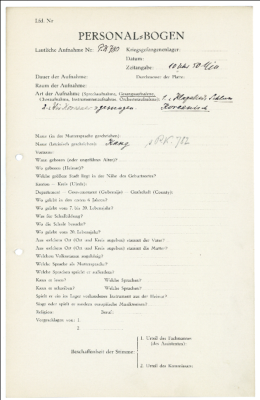 Lfd. Nr.
PERSONAL-BOGEN
Lautliche Aufnahme Nr.: Kriegsgefangenenlager:
Datum:
Zeitangabe:
Dauer der Aufnahme: Durchmesser der Platte:
Raum der Aufnahme:
Art der Aufnahme (Sprechaufnahme, Gesangsaufnahme,
Choraufnahme, Instrumentenaufnahme, Orchesteraufnahme): 1.
2. Koreanisch
Name (in der Muttersprache geschrieben):
Name (lateinisch geschrieben): Kang
Vorname:
Wann geboren (oder ungefähres Alter)?
Wo geboren (Heimat)?
Welche größere Stadt liegt in der Nähe des Geburtsortes?
Kanton — Kreis (Ujedz):
Departement — Gouvernement (Gubernija) — Grafschaft (County):
Wo gelebt in den ersten 6 Jahren?
Wo gelebt vom 7. bis 20. Lebensjahr?
Was für Schulbildung?
Wo die Schule besucht?
Wo gelebt vom 20. Lebensjahr?
Aus welchem Ort (Ort und Kreis angeben) stammt der Vater?
Aus welchem Ort (Ort und Kreis angeben) stammt die Mutter?
Welchem Volksstamm angehörig?
Welche Sprache als Muttersprache?
Welche Sprachen spricht er außerdem?
Kann er lesen? Welche Sprachen?
Kann er schreiben? Welche Sprachen?
Spielt er ein im Lager vorhandenes Instrument aus der Heimat?
Singt oder spielt er moderne europäische Musikweisen?
Religion: Beruf:
Vorgeschlagen von: 1.
2.
Beschaffenheit der Stimme:
1. Urteil des Fachmannes
(des Assistenten):
2. Urteil des Kommissars: